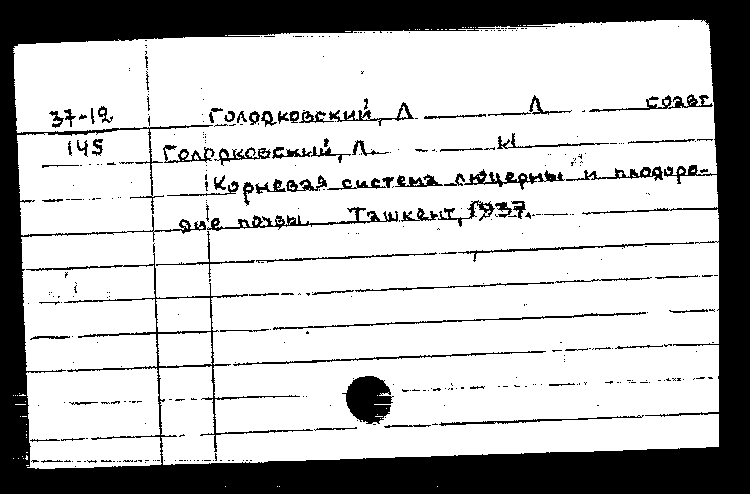 37-12 Голодковский, Л Л соавт
145 Голодковский, Л. И
Корневая система люцерны и плодоро-
дие почвы. Ташкент, 1937.